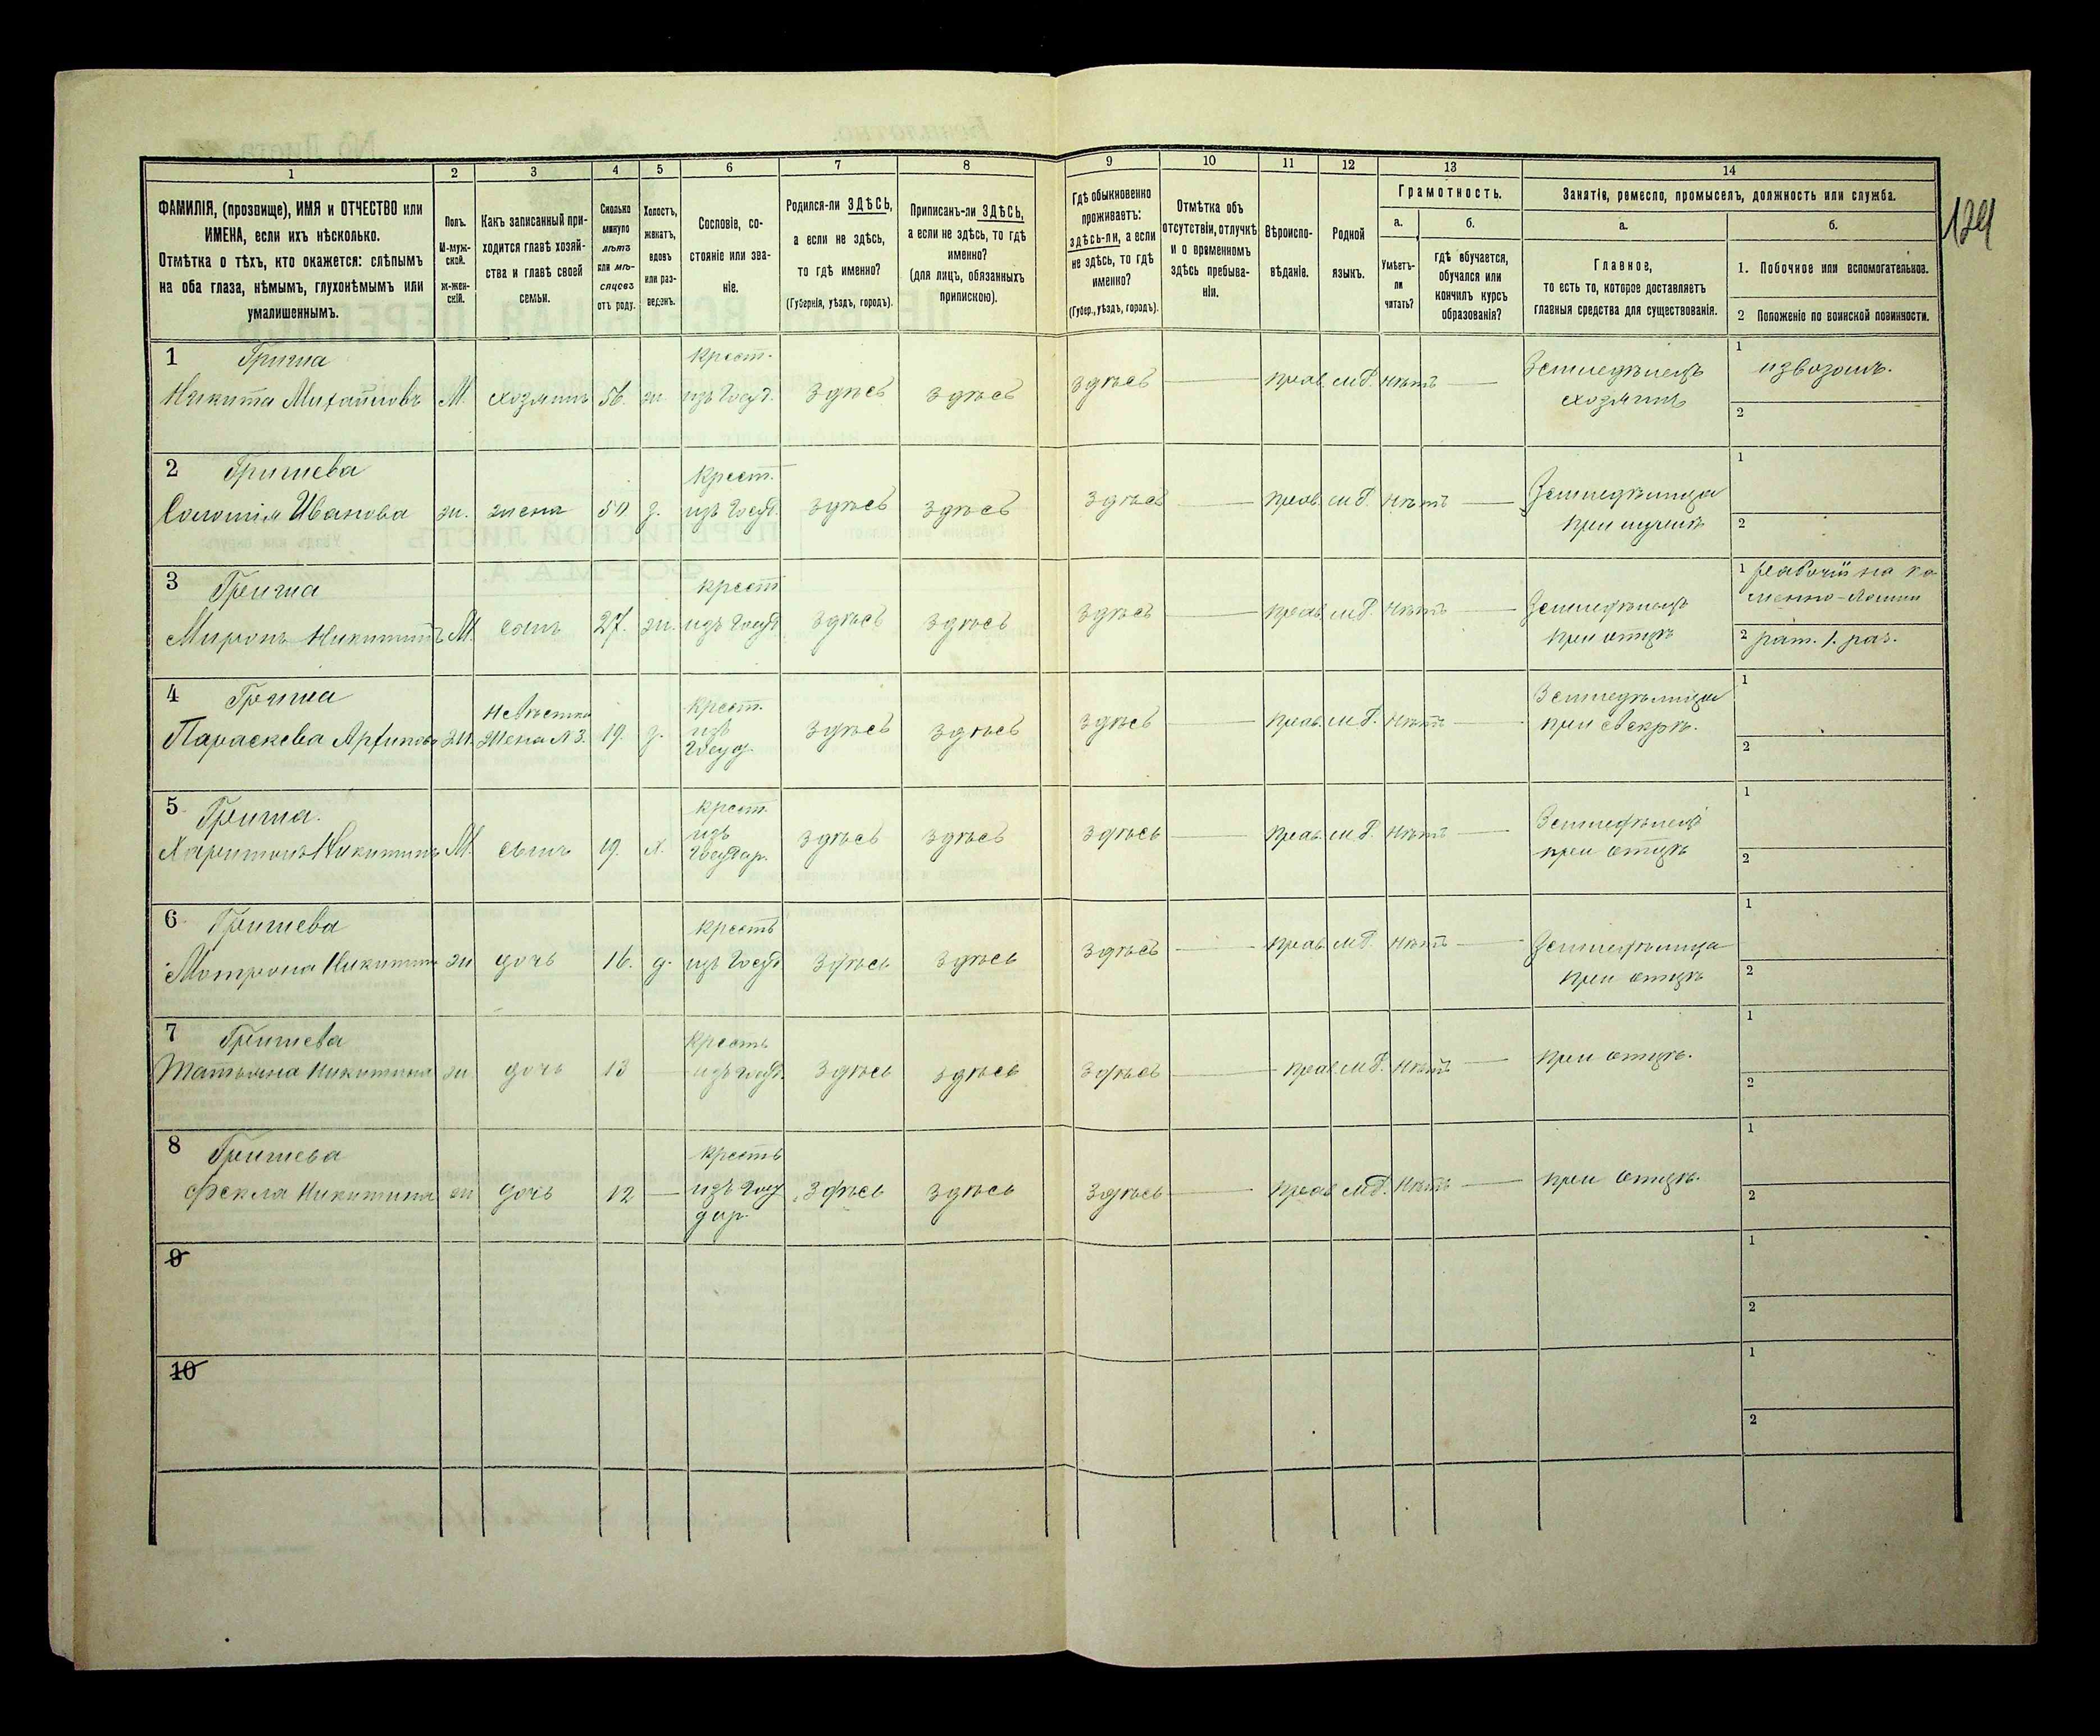 129
1 2 3 4 5 6 7 8 9 10 11 12 13 14
ФАМИЛІЯ, (прозвище), ИМЯ и ОТЧЕСТВО или
ИМЕНА, если ихъ нѣсколько.
Отмѣтка о тѣхъ, кто окажется: слѣпымъ
на оба глаза, нѣмымъ, глухонѣмымъ или
умалишеннымъ.
Полъ.
М-муж-
ской.
ж-жен-
скій.
Какъ записанный при-
ходится главѣ хозяй-
ства и главѣ своей
семьи.
Сколько
минуло
лѣтъ
или мѣ-
сяцевъ
отъ роду.
Холостъ,
женатъ,
вдовъ
или раз-
веденъ.
Сословіе, со-
стояніе или зва-
ніе.
Родился-ли ЗДѢСЬ,
а если не здѣсь,
то гдѣ именно?
(Губернія, уѣздъ, городъ).
Приписанъ-ли ЗДѢСЬ,
а если не здѣсь, то гдѣ
именно?
(для лицъ, обязанныхъ
припискою).
Гдѣ обыкновенно
проживаетъ:
здѣсь-ли, а если
не здѣсь, то гдѣ
именно?
(Губер., уѣздъ, городъ).
Отмѣтка объ
отсутствіи, отлучкѣ
и о временномъ
здѣсь пребыва-
ніи.
Вѣроиспо-
вѣданіе.
Родной
языкъ.
Грамотность.
а.
Умѣетъ-
ли
читать?
б.
гдѣ обучается,
обучался или
кончилъ курсъ
образованія?
Занятіе, ремесло, промыселъ, должность или служба.
а.
Главное,
то есть то, которое доставляетъ
главныя средства для существованія.
б.
1. Побочное или вспомогательное.
2 Положеніе по воинской повинности.
1 Гриша крест. 1 извозомъ.
Никита Михайловъ М. хозяинъ 56. ж. изъ Госуд. здѣсь здѣсь здѣсь — прав. мл. нѣтъ — Земледѣлецъ
хозяинъ
2
2 Гришева крест. 1
Соломія Иванова ж. жена 50 з. изъ Госуд. здѣсь здѣсь здѣсь — прав. мл. нѣтъ — Земледѣлица
при мужѣ
2
3 Гриша крест 1 рабочій на ка
менно-
Миронъ Никитинъ М. сынъ 27. ж. изъ Госуд здѣсь здѣсь здѣсь — прав. мл. нѣтъ — Земледѣлецъ
при отцѣ
2 рат. 1. раз.
4 Гриша невѣстка крест. 1
Параскева Архипова ж. жена №3. 19. з. изъ здѣсь здѣсь здѣсь — прав. мл. нѣтъ — Земледѣлица
Госуд. при свекрѣ.
2
5 Гриша. крест. 1
Харитонъ Никитинъ М. сынъ 19. х. изъ здѣсь здѣсь здѣсь — прав. мл. нѣтъ — Земледѣлецъ
Государ. при отцѣ
2
6 Гришева крестъ 1
Мотрона Никитина ж дочь 16. д. изъ Госуд здѣсь здѣсь здѣсь — прав. мл. нѣтъ — Земледѣлица
при отцѣ
2
7 Гришева крестъ 1
Татьяна Никитина ж. дочь 13 — изъ Госуд. здѣсь здѣсь здѣсь — прав. мл. нѣтъ — при отцѣ.
2
8 Гришева крестъ 1
Фекла Никитина ж дочь 12 — изъ Госу здѣсь здѣсь здѣсь — прав. мл. нѣтъ — при отцѣ.
дар. 2
9 1
2
10 1
2